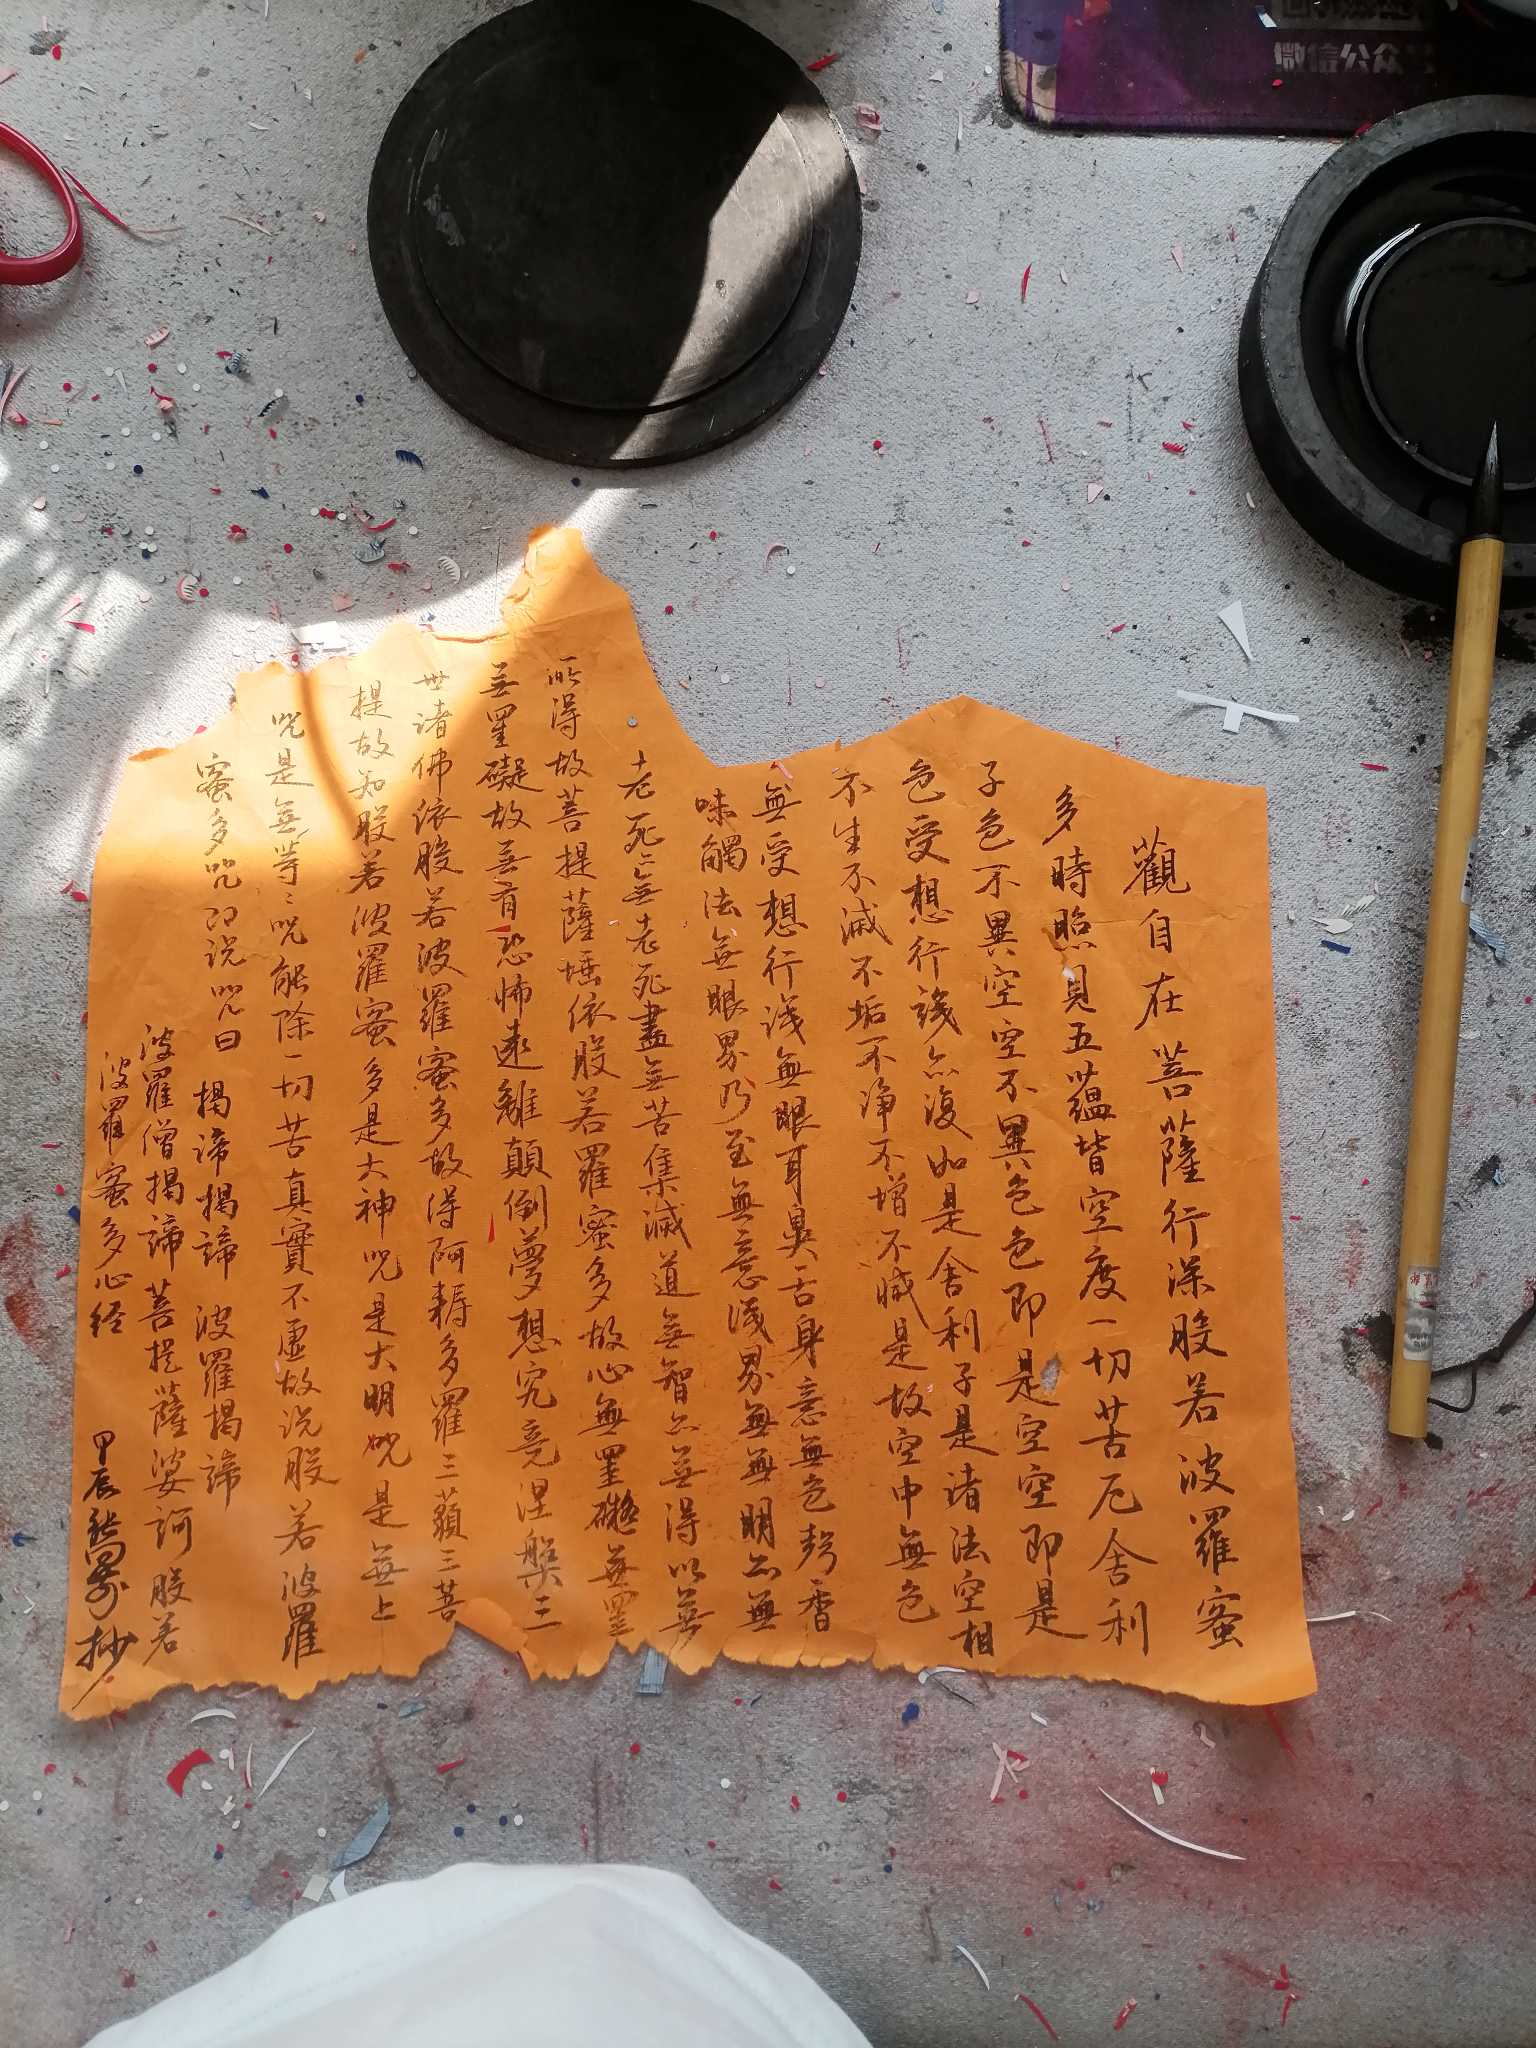 觀自在菩薩行深般若波羅蜜
多時照見五蘊皆空度一切苦厄舍利
子色不異空空不異色色即是空空即是
色受想行識亦復如是舍利子是諸法空相
不生不滅不垢不净不增不減是故空中無色
無受想行識無眼耳鼻舌身意無色聲香
味觸法無眼界乃至無意識界無無明亦無
老死亦無老死盡無苦集滅道無智亦無得以無
所得故菩提薩埵依般若羅蜜多故心無罣礙無罣
無罣礙故無有恐怖遠離顛倒夢想究竟涅槃三
世諸佛依般若波羅蜜多故得阿耨多羅三藐三菩
提故知般若波羅蜜多是大神咒是大明咒是無上
咒是無等々咒能除一切苦真實不虛故说般若波羅
蜜多咒即说咒曰 揭諦揭諦 波羅揭諦
波羅僧揭諦 菩提薩婆訶 般若
波羅蜜多心经 甲辰 抄
微信公众